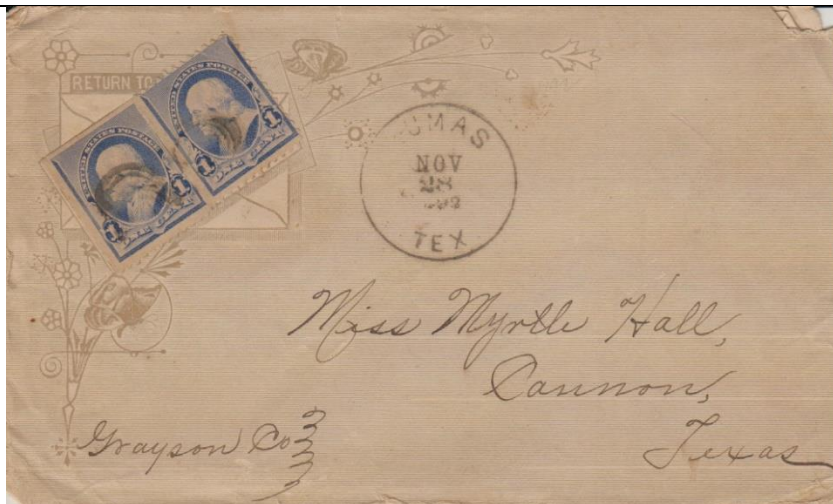 RETURN TO
UNITED STATES POSTAGE
1 ONE CENT 1
UNITED STATES POSTAGE
1 ONE CENT 1
NOV
28
TEX
Miss Myrtle Hall,
Cannon,
Texas
Grayson Co